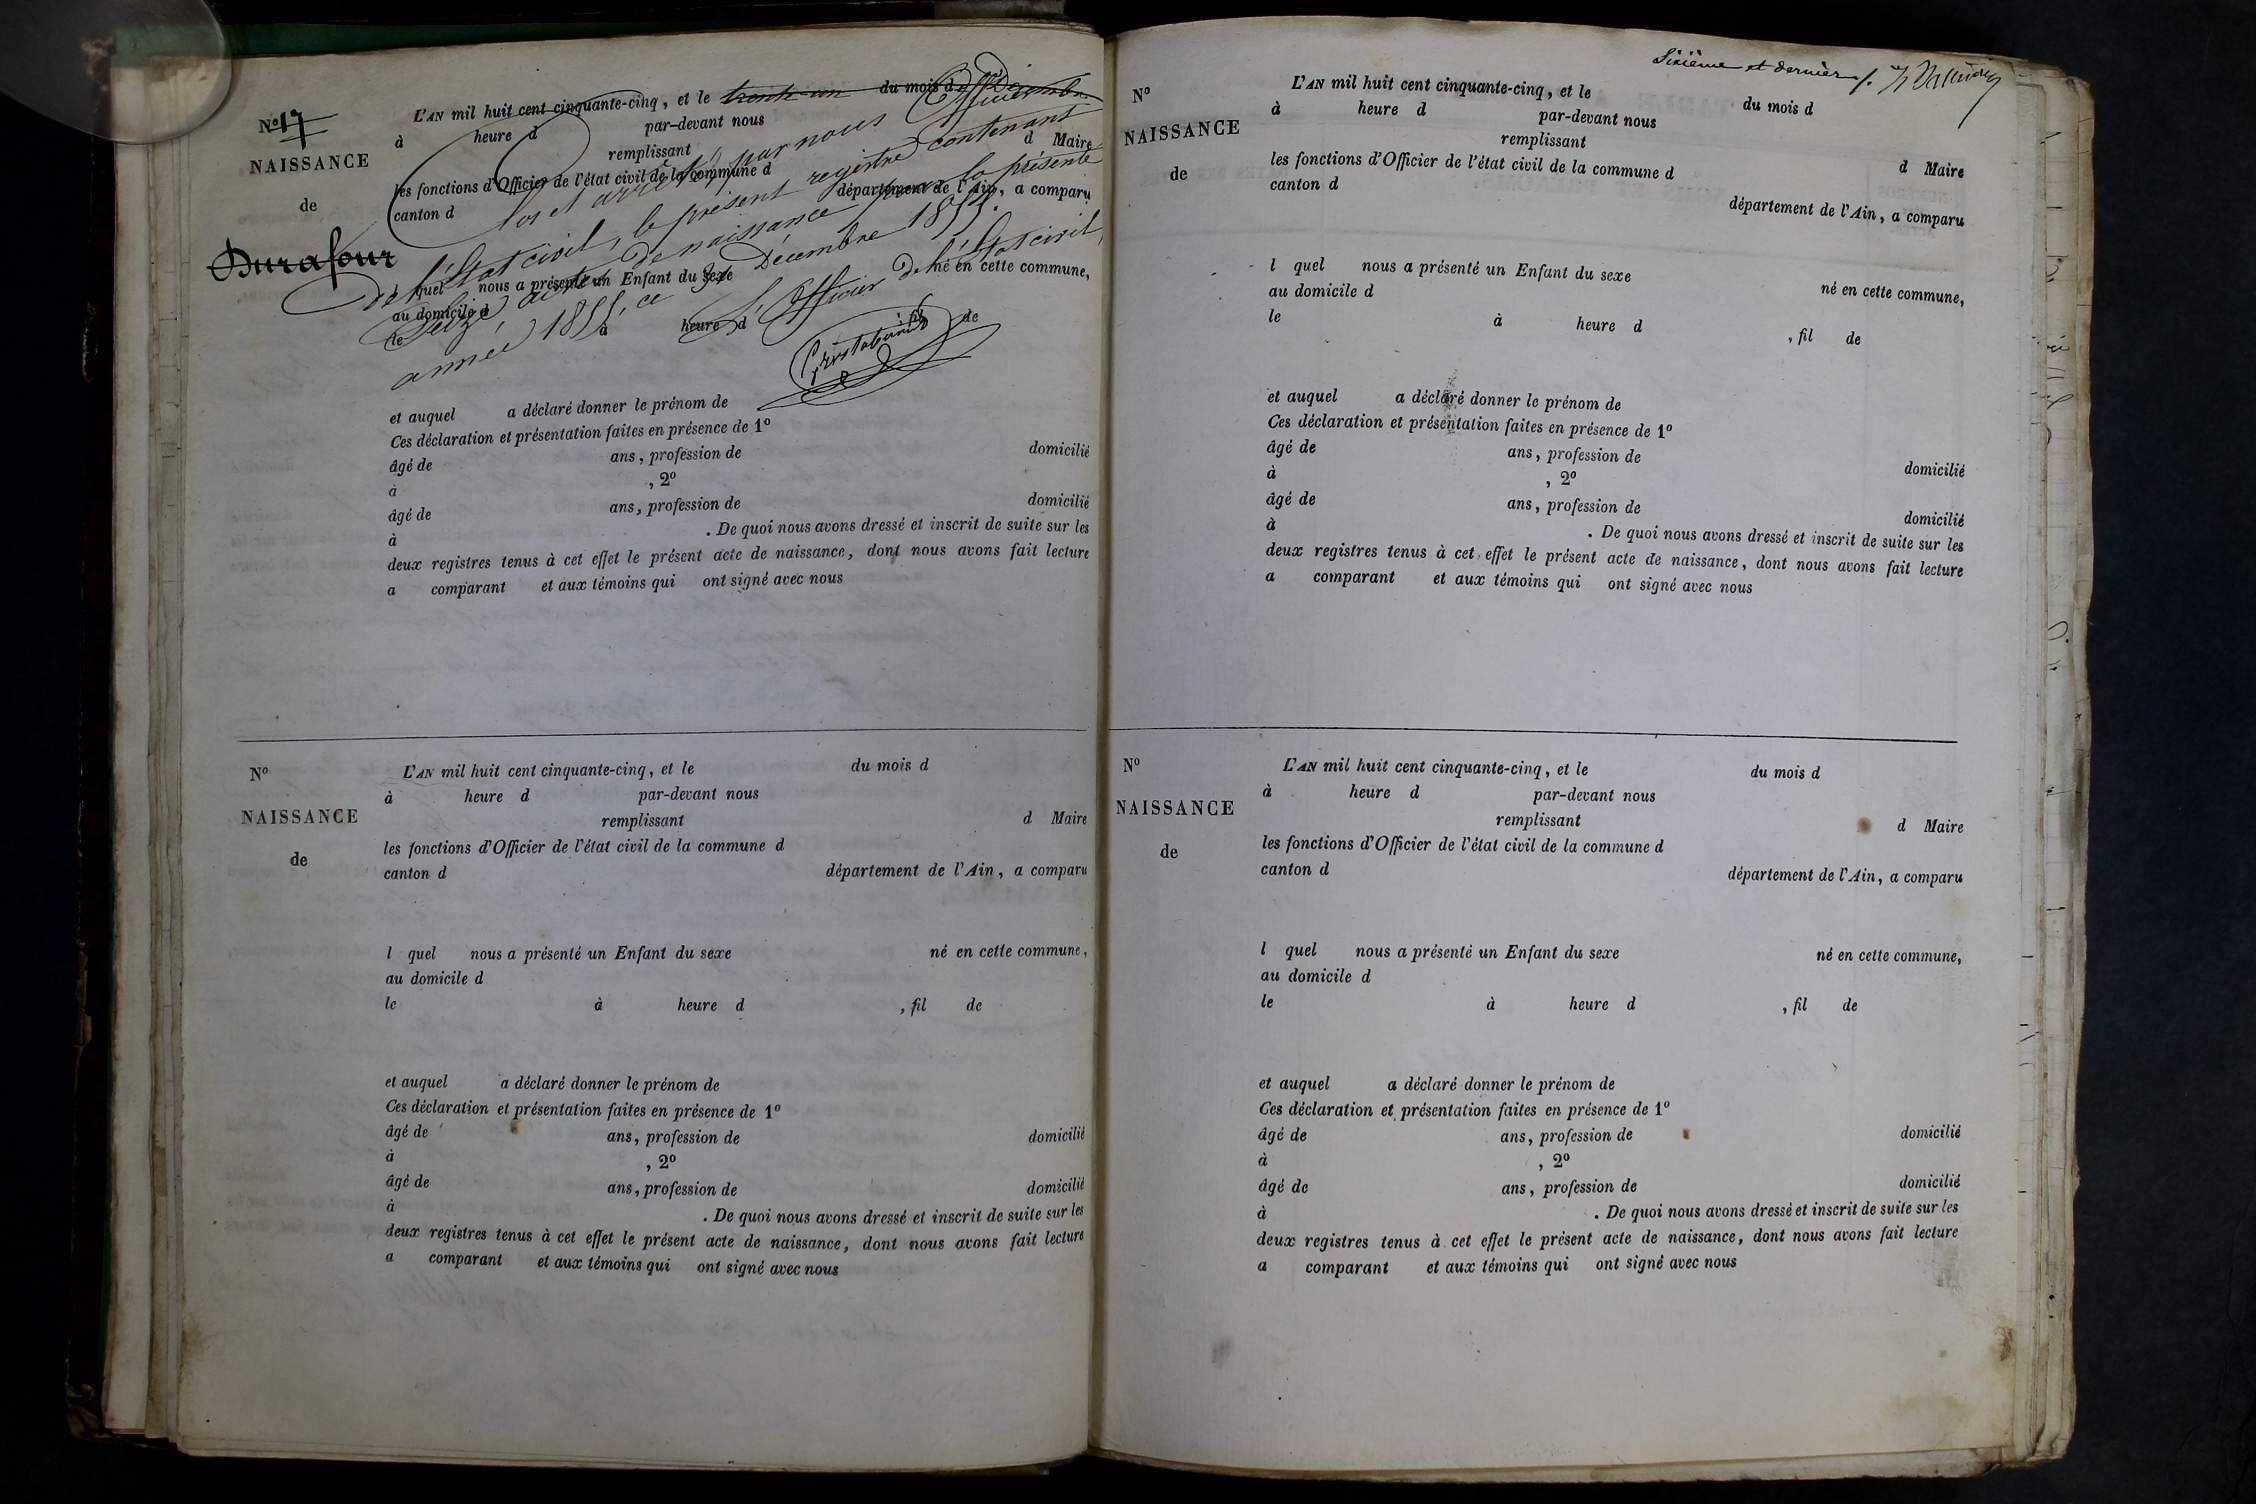 N° 17
NAISSANCE
de
Durafour
L'AN mil huit cent cinquante-cinq, et le trente un du mois de Décembre
à heure d par-devant nous
remplissant d Maire
les fonctions d'Officier de l'état civil de la commune d
canton d département de l'Ain, a comparu
l quel nous a présenté un Enfant du sexe né en cette commune,
au domicile d
le à heure d , fil de
Clos et arrêté par nous Officier
De l'État civil, le présent registre contenant
Seize actes de naissance pour la présente
année 1855, ce 31 Décembre 1855.
L'Officier De l'État civil,
et auquel a déclaré donner le prénom de
Ces déclaration et présentation faites en présence de 1°
âgé de ans, profession de domicilié
à , 2°
âgé de ans, profession de domicilié
à . De quoi nous avons dressé et inscrit de suite sur les
deux registres tenus à cet effet le présent acte de naissance, dont nous avons fait lecture
a comparant et aux témoins qui ont signé avec nous
N°
NAISSANCE
de
L'AN mil huit cent cinquante-cinq, et le du mois d
à heure d par-devant nous
remplissant d Maire
les fonctions d'Officier de l'état civil de la commune d
canton d département de l'Ain, a comparu
l quel nous a présenté un Enfant du sexe né en cette commune,
au domicile d
le à heure d , fil de
et auquel a déclaré donner le prénom de
Ces déclaration et présentation faites en présence de 1°
âgé de ans, profession de domicilié
à , 2°
âgé de ans, profession de domicilié
à . De quoi nous avons dressé et inscrit de suite sur les
deux registres tenus à cet effet le présent acte de naissance, dont nous avons fait lecture
a comparant et aux témoins qui ont signé avec nous
Sixième et dernier f.
N°
NAISSANCE
de
L'AN mil huit cent cinquante-cinq, et le du mois d
à heure d par-devant nous
remplissant d Maire
les fonctions d'Officier de l'état civil de la commune d
canton d département de l'Ain, a comparu
l quel nous a présenté un Enfant du sexe né en cette commune,
au domicile d
le à heure d , fil de
et auquel a déclaré donner le prénom de
Ces déclaration et présentation faites en présence de 1°
âgé de ans, profession de domicilié
à , 2°
âgé de ans, profession de domicilié
à . De quoi nous avons dressé et inscrit de suite sur les
deux registres tenus à cet effet le présent acte de naissance, dont nous avons fait lecture
a comparant et aux témoins qui ont signé avec nous
N°
NAISSANCE
de
L'AN mil huit cent cinquante-cinq, et le du mois d
à heure d par-devant nous
remplissant d Maire
les fonctions d'Officier de l'état civil de la commune d
canton d département de l'Ain, a comparu
l quel nous a présenté un Enfant du sexe né en cette commune,
au domicile d
le à heure d , fil de
et auquel a déclaré donner le prénom de
Ces déclaration et présentation faites en présence de 1°
âgé de ans, profession de domicilié
à , 2°
âgé de ans, profession de domicilié
à . De quoi nous avons dressé et inscrit de suite sur les
deux registres tenus à cet effet le présent acte de naissance, dont nous avons fait lecture
a comparant et aux témoins qui ont signé avec nous